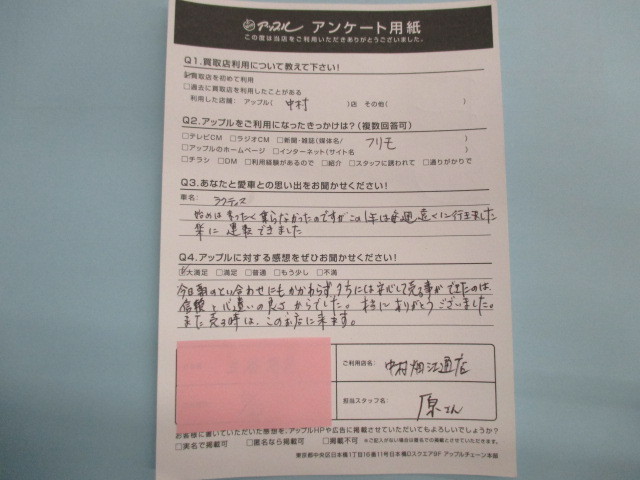 アップル アンケート用紙
この度は当店をご利用いただきありがとうございました。
Q1.買取店利用について教えて下さい!
☑買取店を初めて利用
□過去に買取店を利用したことがある
利用した店舗: アップル( 中村 )店 その他( )
Q2.アップルをご利用になったきっかけは?(複数回答可)
□テレビCM □ラジオCM □新聞・雑誌(媒体名/ フリモ )
□アップルのホームページ □インターネット(サイト名 )
□チラシ □DM □利用経験があるので □紹介 □スタッフに誘われて □通りがかりで
Q3.あなたと愛車との思い出をお聞かせください!
車名: ラクティス
始めはまったく乗らなかったのですがこの1年は毎週遠くに行きました
楽に運転できました
Q4.アップルに対する感想をぜひお聞かせください!
☑大満足 □満足 □普通 □もう少し □不満
今日朝のといあわせにもかかわらずうちには安心して売る事ができたのは、
信頼と心遣いの良さからでした。本当にありがとうございました。
また売る時は、このお店に来ます。
ご利用店名: 中村畑江通店
担当スタッフ名: 原さん
お客様に書いていただいた感想を、アップルHPや広告に掲載させていただいてもよろしいでしょうか?
□実名で掲載可 □匿名なら掲載可 □掲載不可 ※ご記入がない場合は匿名での掲載とさせていただきます。
東京都中央区日本橋1丁目16番11号日本橋Dスクエア8F アップルチェーン本部